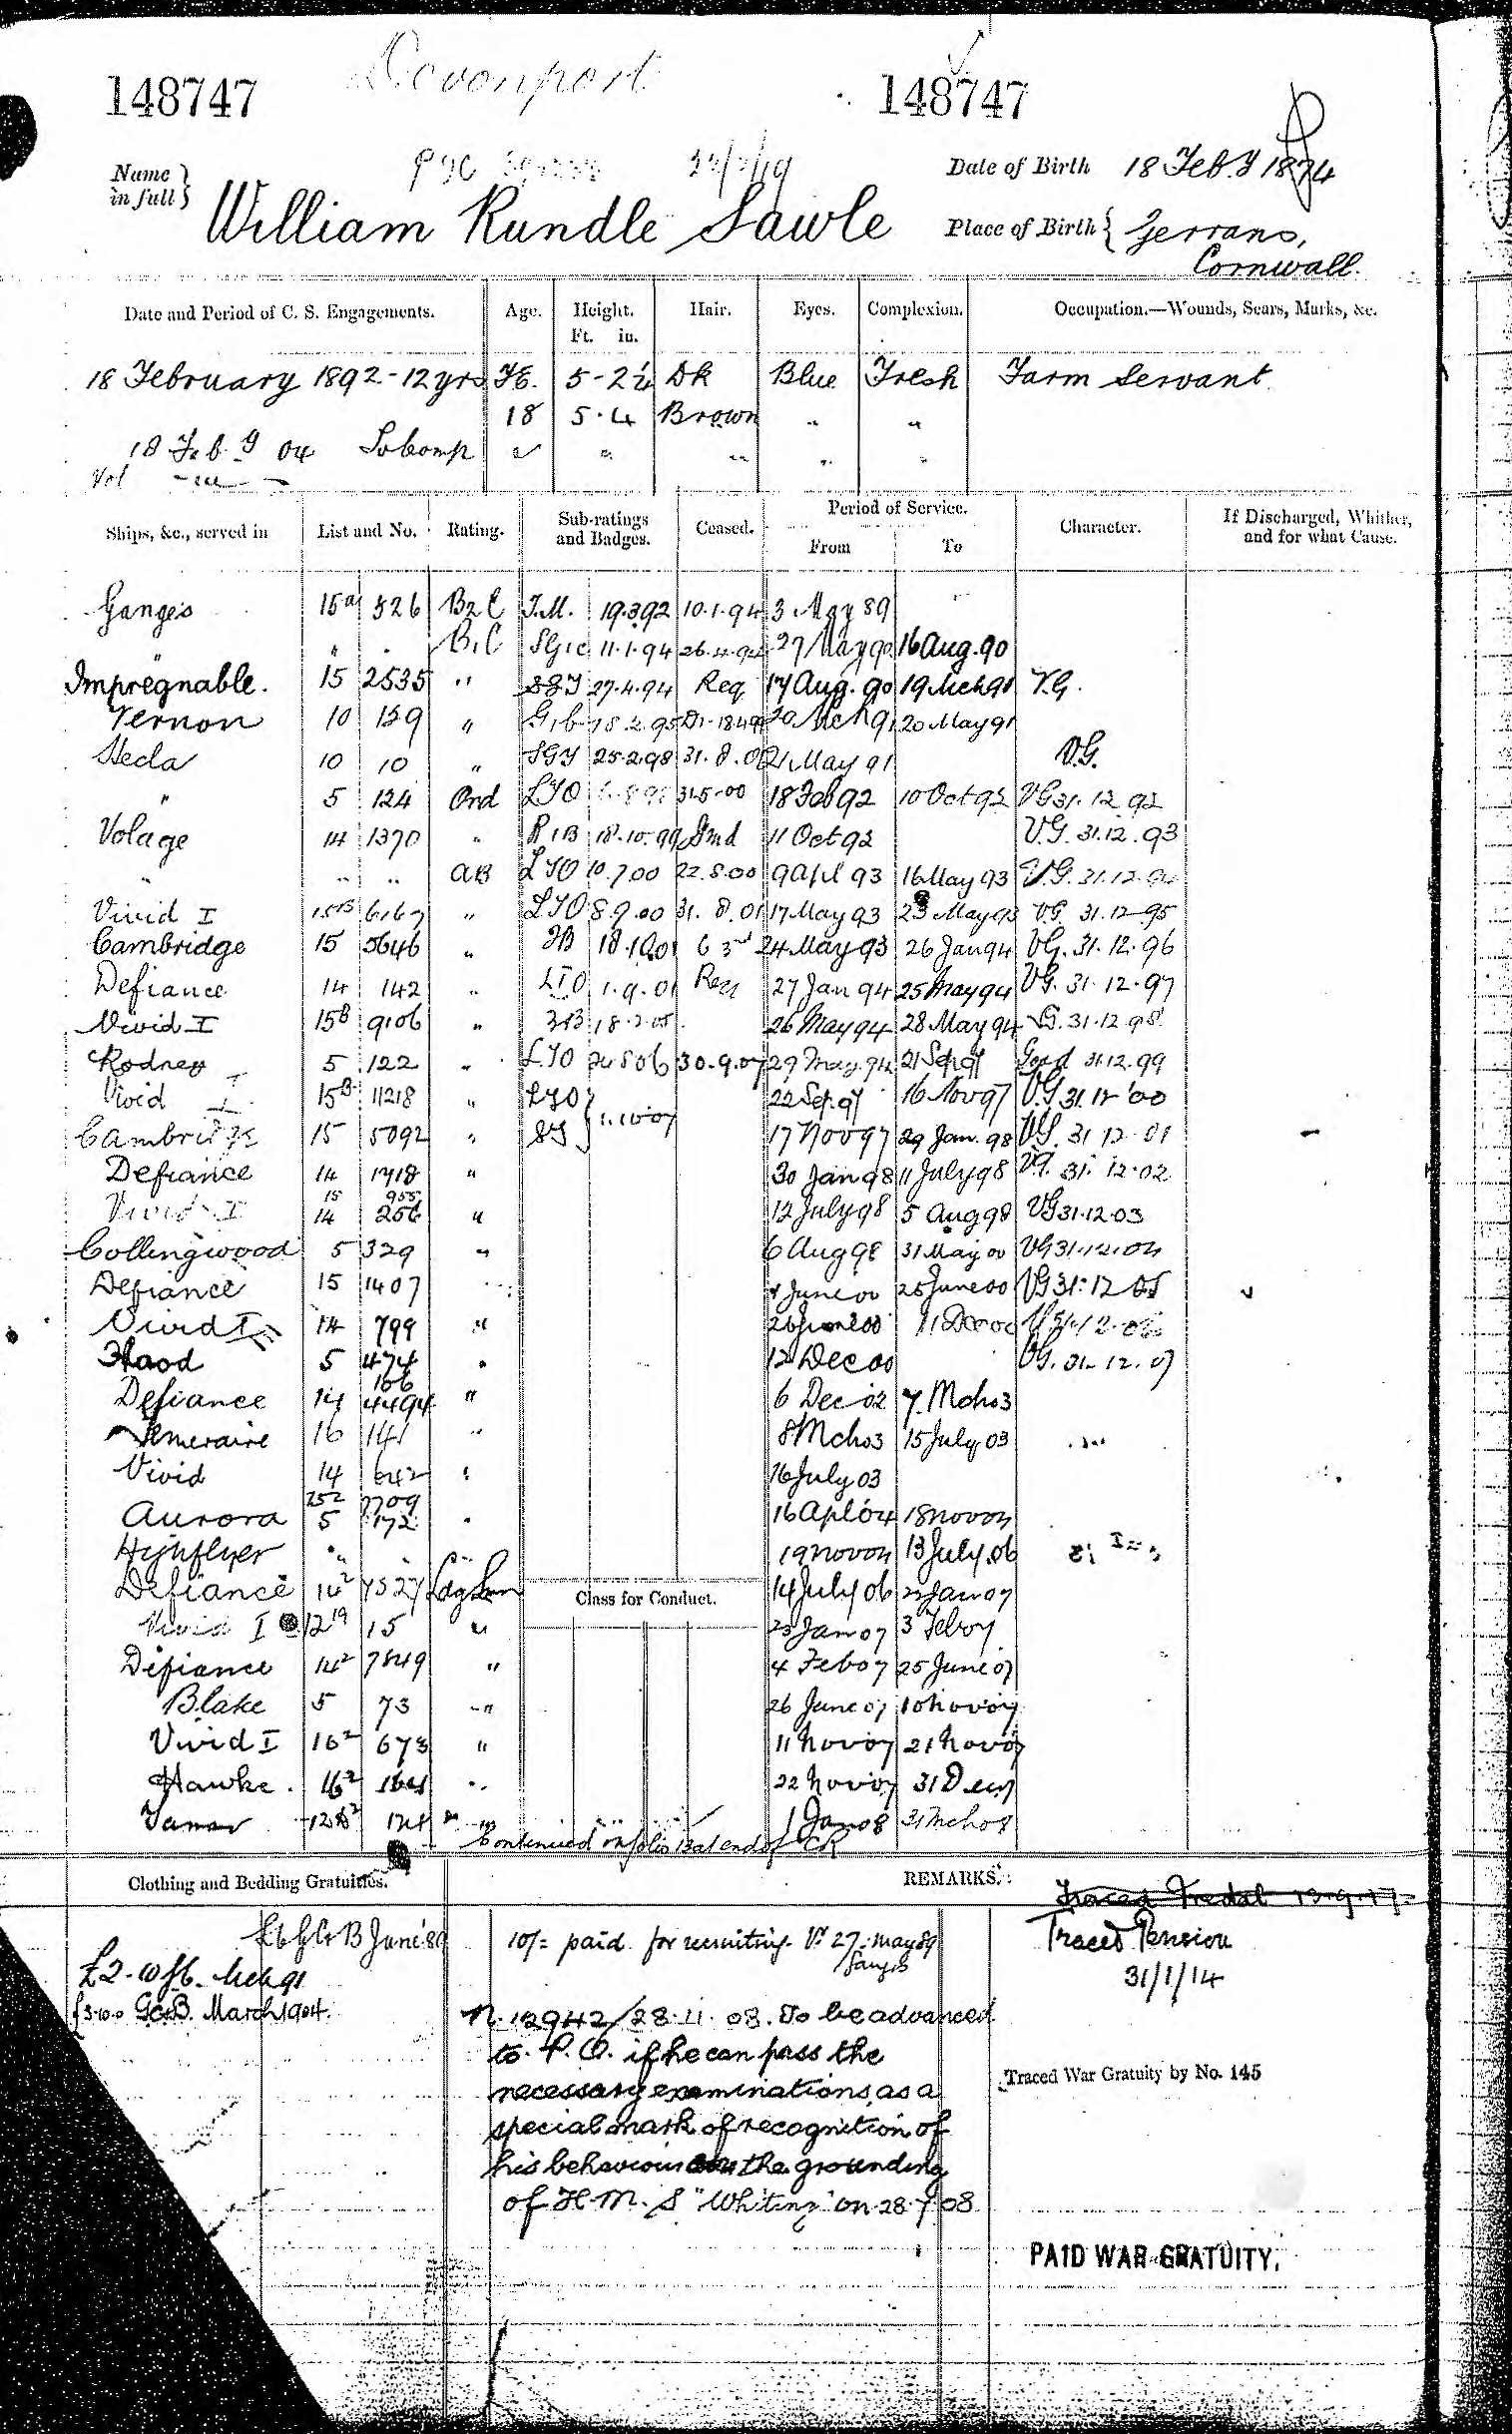 Devonport
148747 148747
Name in full } William Rundle Sawle
Date of Birth 18 Feb.y 1874
Place of Birth { Gerrans, Cornwall.
Date and Period of C. S. Engagements. Age. Height. Ft. in. Hair. Eyes. Complexion. Occupation.—Wounds, Scars, Marks, &c.
18 February 1892 - 12 yrs 5-2½ Dk Blue Fresh Farm Servant
18 5.4 Brown " "
18 Feb.y 04 To comp " " " "
Vol
Ships, &c., served in List and No. Rating. Sub-ratings and Badges. Ceased. Period of Service. From To Character. If Discharged, Whither, and for what Cause.
Ganges 15a 526 B2C T.M. 19.3.92 10.1.94 3 May 89
" " . B1C 11.1.94 26.4.94 27 May 90 16 Aug. 90
Impregnable. 15 2535 " 27.4.94 Req 17 Aug. 90 19 Mch 91 V.G.
Vernon 10 159 " 20 Mch 91 20 May 91
Hecla 10 10 " SGT 25.2.98 31.8.01 21 May 91 V.G.
" 5 124 Ord LTO 31.5.00 18 Feb 92 10 Oct 92 VG 31.12.92
Volage 14 1370 " 18.10.99 11 Oct 92 V.G. 31.12.93
" " " AB LTO 10.7.00 22.8.00 9 Apl 93 16 May 93 V.G. 31.12.94
Vivid I 15B 6167 " LTO 8.9.00 31.8.01 17 May 93 23 May 93 VG. 31.12.95
Cambridge 15 5646 " 24 May 93 26 Jan 94 VG. 31.12.96
Defiance 14 142 " LTO 1.9.01 27 Jan 94 25 May 94 VG. 31.12.97
Vivid I 15B 9106 " 26 May 94 28 May 94 VG. 31.12.98
Rodney 5 122 " LTO 30.9.07 29 May. 94 21 Sep 97 Good 31.12.99
Vivid I 15B 11218 " LTO } 1.10.07 22 Sep. 97 16 Nov 97 V.G 31.12.00
Cambridge 15 5092 " ST } 17 Nov 97 29 Jan. 98 VG. 31.12.01
Defiance 14 1718 " 30 Jan 98 11 July 98 VG. 31.12.02
Vivid I 15 955 14 256 " 12 July 98 5 Aug 98 VG 31.12.03
Collingwood 5 329 " 6 Aug 98 31 May 00 VG 31.12.04
Defiance 15 1407 1 June 00 25 June 00 VG 31.12.05
Vivid I 14 799 " 26 June 00 11 Dec 00
Hood 5 474 " 12 Dec 00 VG. 31.12.07
Defiance 14 166 4494 " 6 Dec 02 7 Mch 03
Temeraire 16 141 " 8 Mch 03 15 July 03
Vivid 14 642 " 16 July 03
Aurora 252 7709 5 172 " 16 Apl 04 18 Nov 04
Highflyer " 19 Nov 04 13 July 06
Defiance 14² 7527 Ldg Smn Class for Conduct. 14 July 06 22 Jan 07
Vivid I 12 19 15 " 23 Jan 07 3 Feb 07
Defiance 14² 7849 " 4 Feb 07 25 June 07
Blake 5 73 " 26 June 07 10 Nov 07
Vivid I 16² 673 " 11 Nov 07 21 Nov 07
Hawke. 16² " 22 Nov 07 31 Dec 07
Tamar 124 1 Jan 08 31 Mch 08
Continued on folio 13 at end of CR
Clothing and Bedding Gratuities. REMARKS.
Traced Medal 13.9.17
10/= paid for recruiting. Vr 27 May 89 Ganges
Traced Pension
31/1/14
£2-10 Mch 91
£3.10.0 G&B. March 1904.
N. 12942/28.11.08. To be advanced
to P.O. if he can pass the
necessary examinations, as a
special mark of recognition of
his behaviour on the grounding
of H.M.S "Whiting" on 28.7.08
Traced War Gratuity by No. 145
PAID WAR GRATUITY.